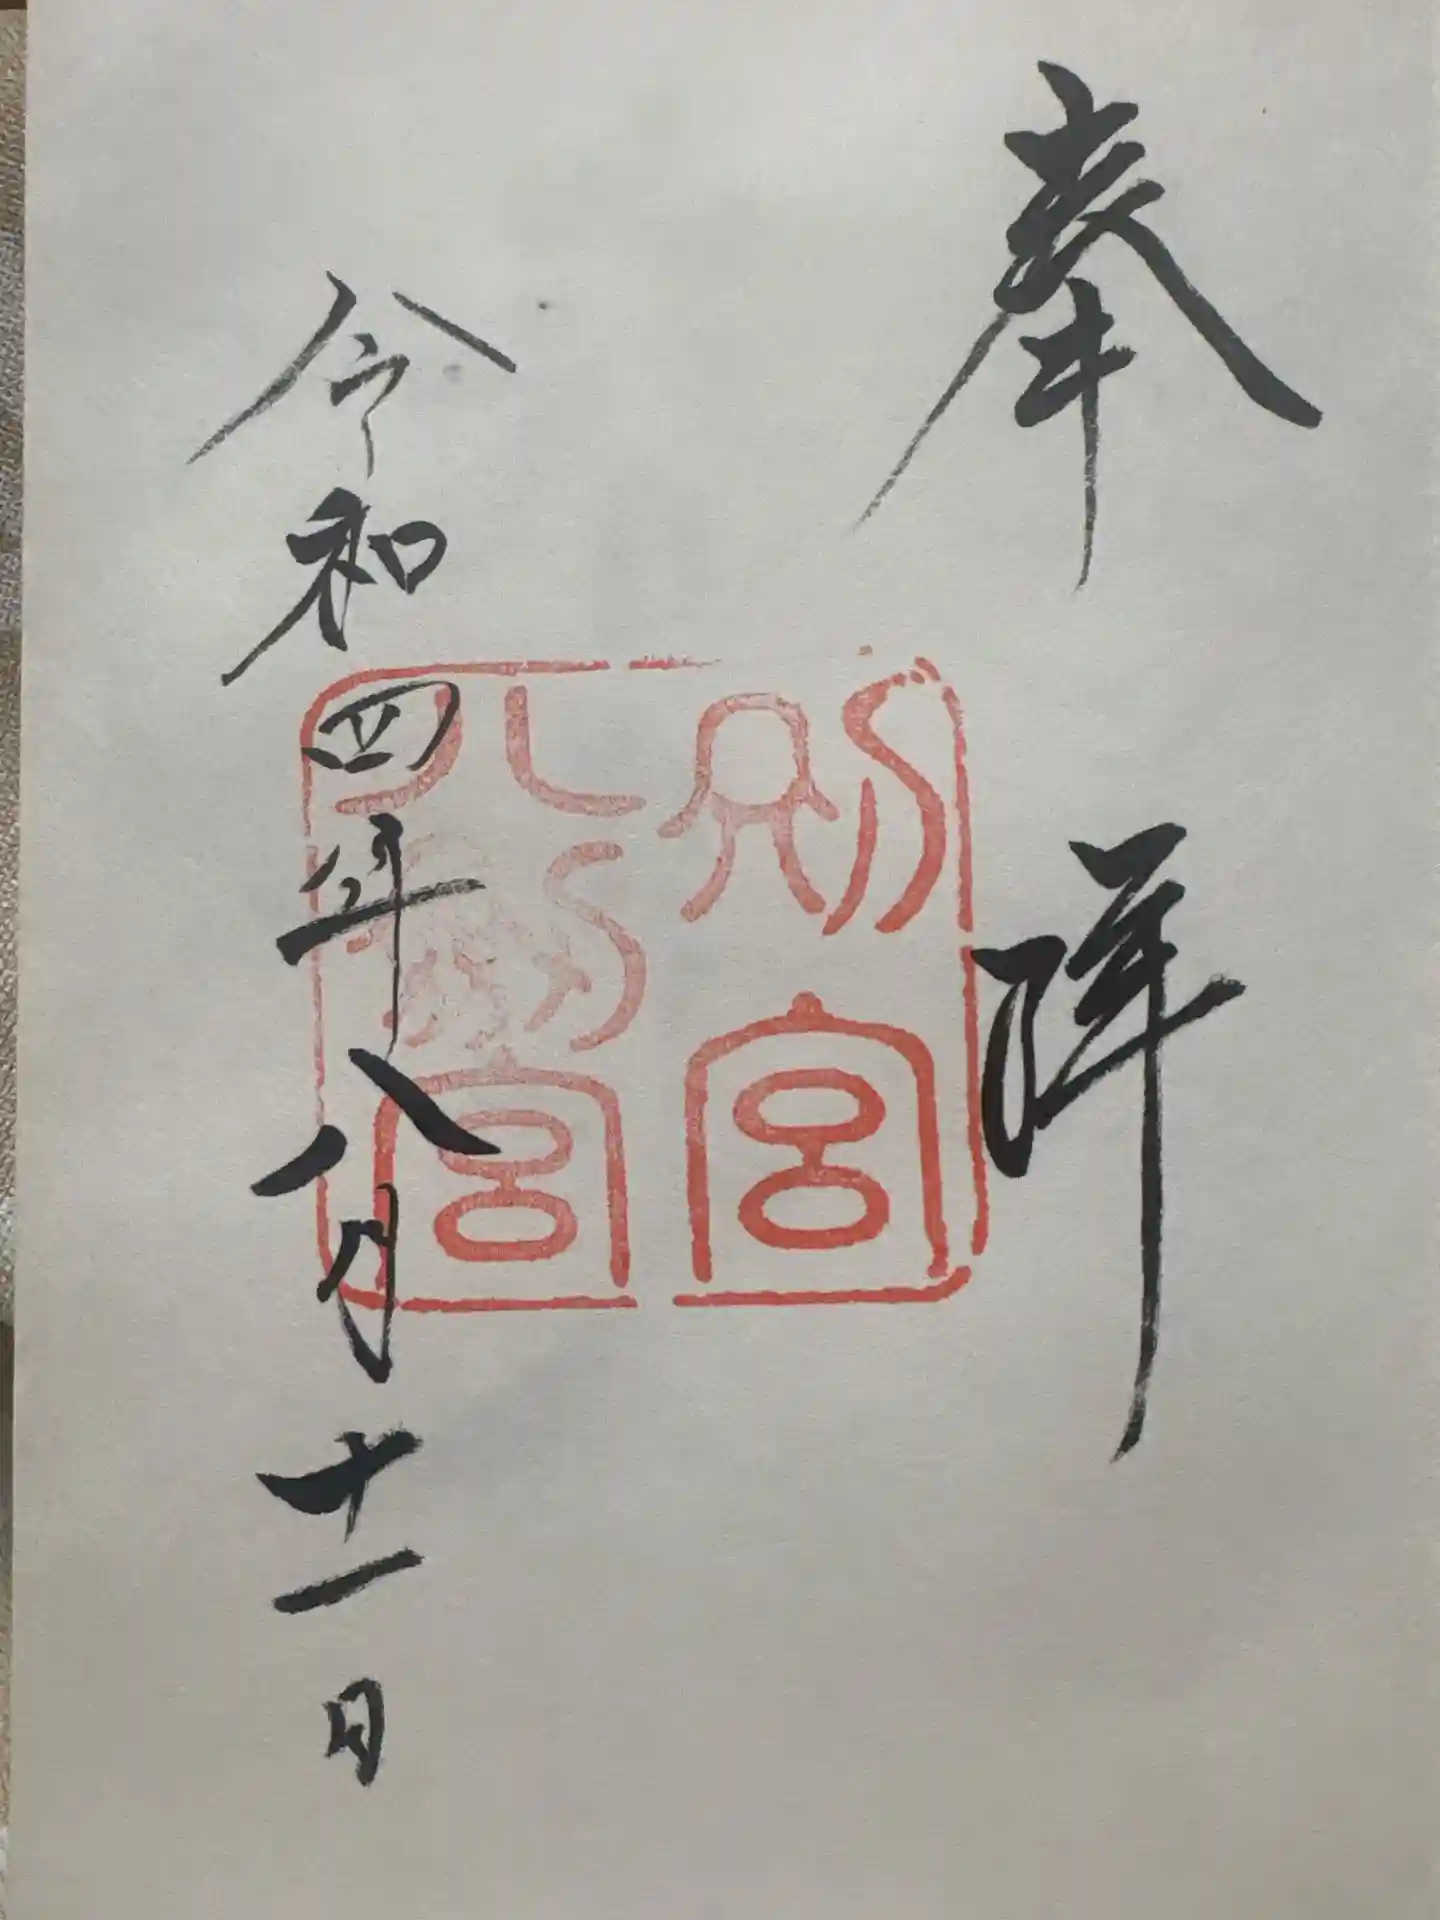 奉拝
別宮
八剣宮
令和四年八月十一日